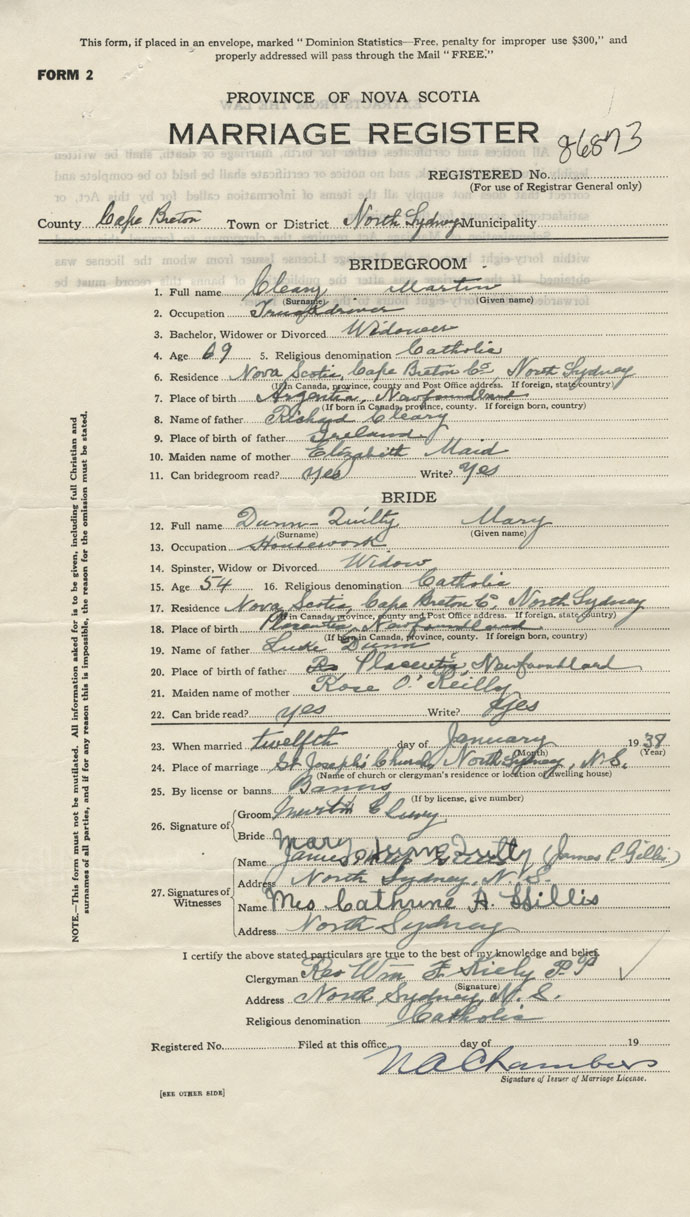 This form, if placed in an envelope, marked "Dominion Statistics—Free, penalty for improper use $300," and
properly addressed will pass through the Mail "FREE."
FORM 2
PROVINCE OF NOVA SCOTIA
MARRIAGE REGISTER
86873
REGISTERED No.
(For use of Registrar General only)
County Cape Breton Town or District North Sydney Municipality
BRIDEGROOM
1. Full name Cleary Martin
(Surname) (Given name)
2. Occupation Truckdriver
3. Bachelor, Widower or Divorced Widower
4. Age 69 5. Religious denomination Catholic
6. Residence Nova Scotia, Cape Breton Co. North Sydney
(If in Canada, province, county and Post Office address. If foreign, state country)
7. Place of birth Argentia, Newfoundland
(If born in Canada, province, county. If foreign born, country)
8. Name of father Richard Cleary
9. Place of birth of father Ireland
10. Maiden name of mother Elizabeth Maid
11. Can bridegroom read? yes Write? yes
BRIDE
12. Full name Dunn-Quilty Mary
(Surname) (Given name)
13. Occupation Housework
14. Spinster, Widow or Divorced Widow
15. Age 54 16. Religious denomination Catholic
17. Residence Nova Scotia, Cape Breton Co. North Sydney
(If in Canada, province, county and Post Office address. If foreign, state country)
18. Place of birth Placentia, Newfoundland
(If born in Canada, province, county. If foreign born, country)
19. Name of father Luke Dunn
20. Place of birth of father Placentia, Newfoundland
21. Maiden name of mother Rose O'Reilly
22. Can bride read? yes Write? yes
23. When married twelfth day of January 1938
(Month) (Year)
24. Place of marriage St Joseph's Church, North Sydney, N.S.
(Name of church or clergyman's residence or location of dwelling house)
25. By license or banns Banns
(If by license, give number)
26. Signature of
Groom Martin Cleary
Bride Mary Dunn Quilty
27. Signatures of Witnesses
Name James (James P. Gillis)
Address North Sydney, N.S.
Name Mrs Cathrine A. Gillis
Address North Sydney
I certify the above stated particulars are true to the best of my knowledge and belief.
Clergyman Rev Wm F. Kiely P.P
(Signature)
Address North Sydney N.S.
Religious denomination Catholic
Registered No. Filed at this office day of 19
N A Chambers
Signature of Issuer of Marriage License.
[SEE OTHER SIDE]
NOTE.—This form must not be mutilated. All information asked for is to be given, including full Christian and
surnames of all parties, and if for any reason this is impossible, the reason for the omission must be stated.